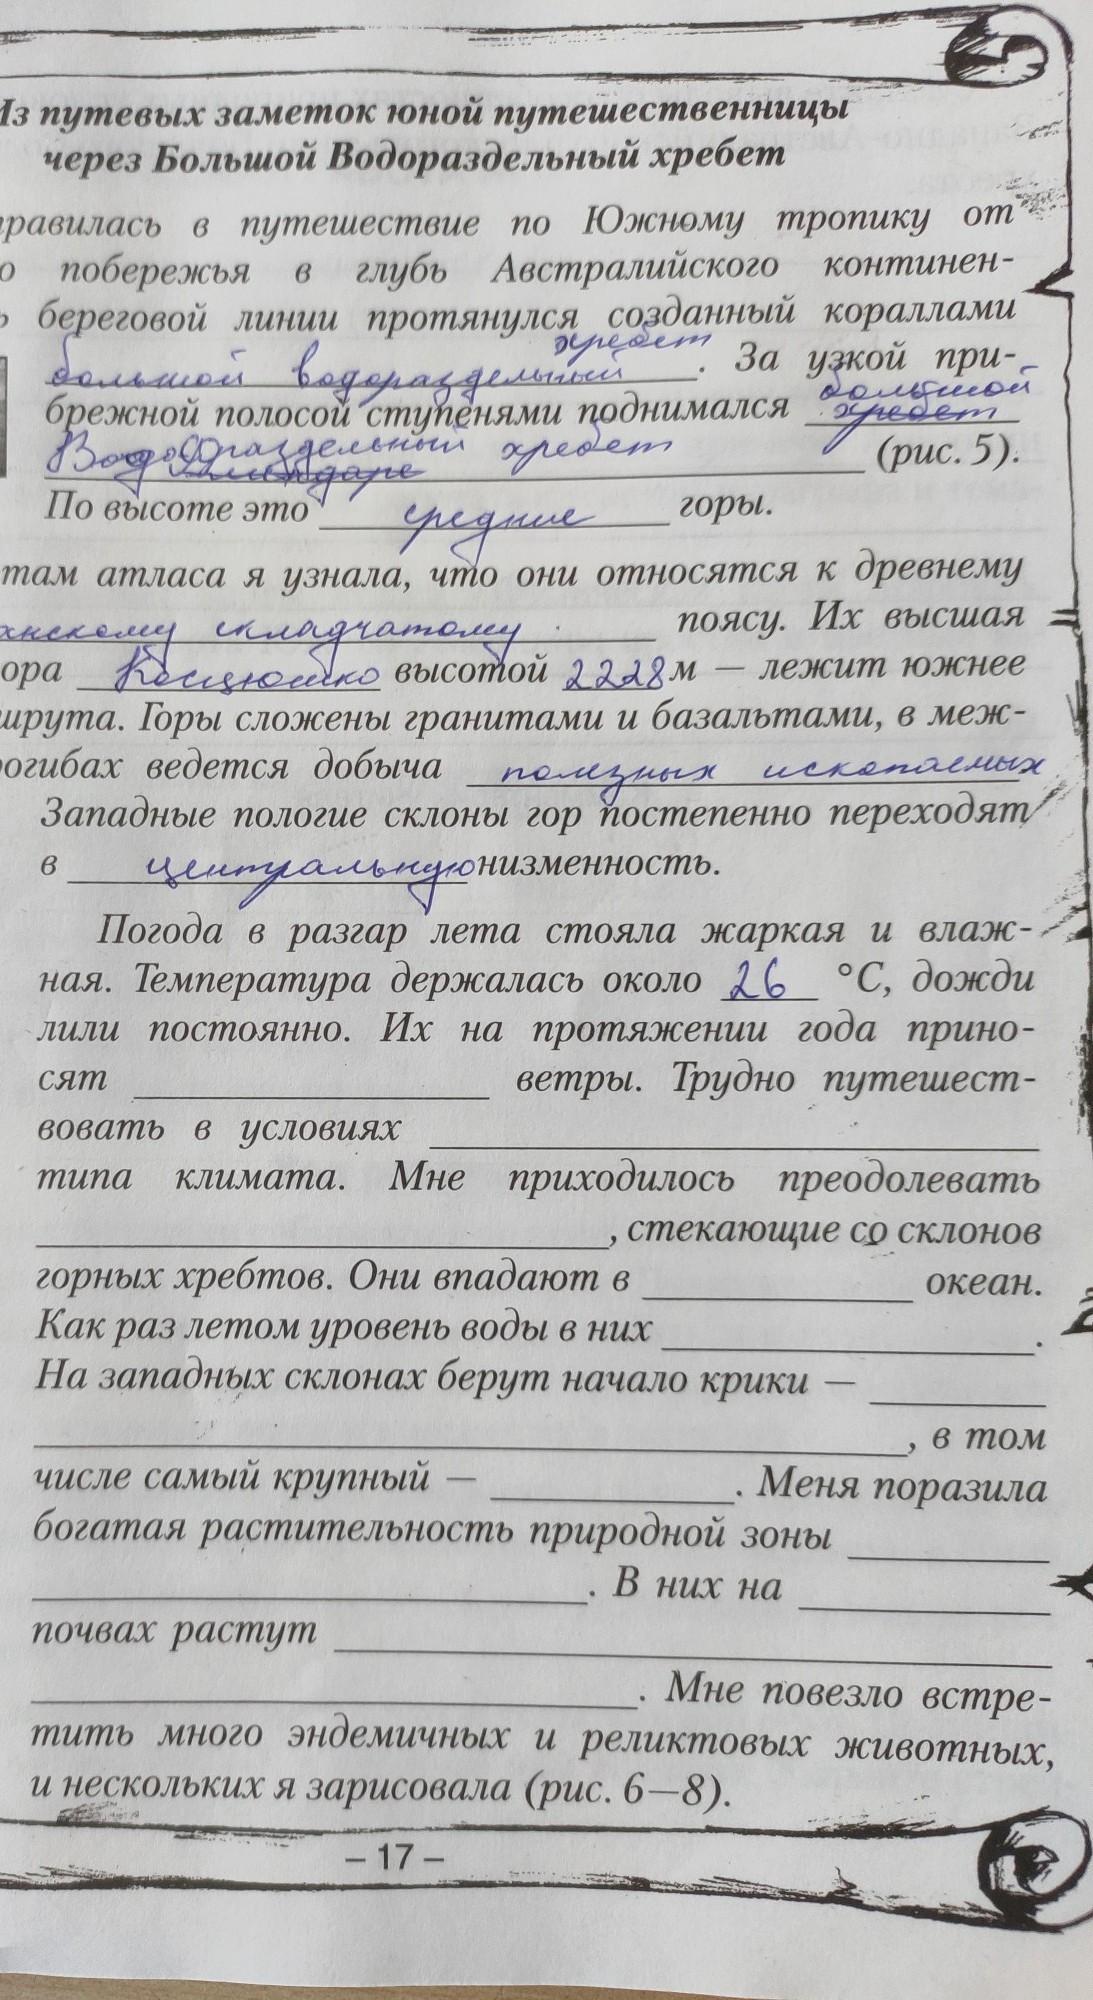 Из путевых заметок юной путешественницы
через Большой Водораздельный хребет
равилась в путешествие по Южному тропику от
о побережья в глубь Австралийского континен-
ь береговой линии протянулся созданный кораллами
большой водораздельный хребет . За узкой при-
брежной полосой ступенями поднимался хребет большой
Водораздельный хребет (рис. 5).
По высоте это средние горы.
там атласа я узнала, что они относятся к древнему
анскому складчатому поясу. Их высшая
ора Косцюшко высотой 2228 м — лежит южнее
шрута. Горы сложены гранитами и базальтами, в меж-
рогибах ведется добыча полезных ископаемых
Западные пологие склоны гор постепенно переходят
в центральную низменность.
Погода в разгар лета стояла жаркая и влаж-
ная. Температура держалась около 26 °С, дожди
лили постоянно. Их на протяжении года прино-
сят ветры. Трудно путешест-
вовать в условиях
типа климата. Мне приходилось преодолевать
, стекающие со склонов
горных хребтов. Они впадают в океан.
Как раз летом уровень воды в них .
На западных склонах берут начало крики —
, в том
числе самый крупный — . Меня поразила
богатая растительность природной зоны
. В них на
почвах растут
. Мне повезло встре-
тить много эндемичных и реликтовых животных,
и нескольких я зарисовала (рис. 6—8).
– 17 –